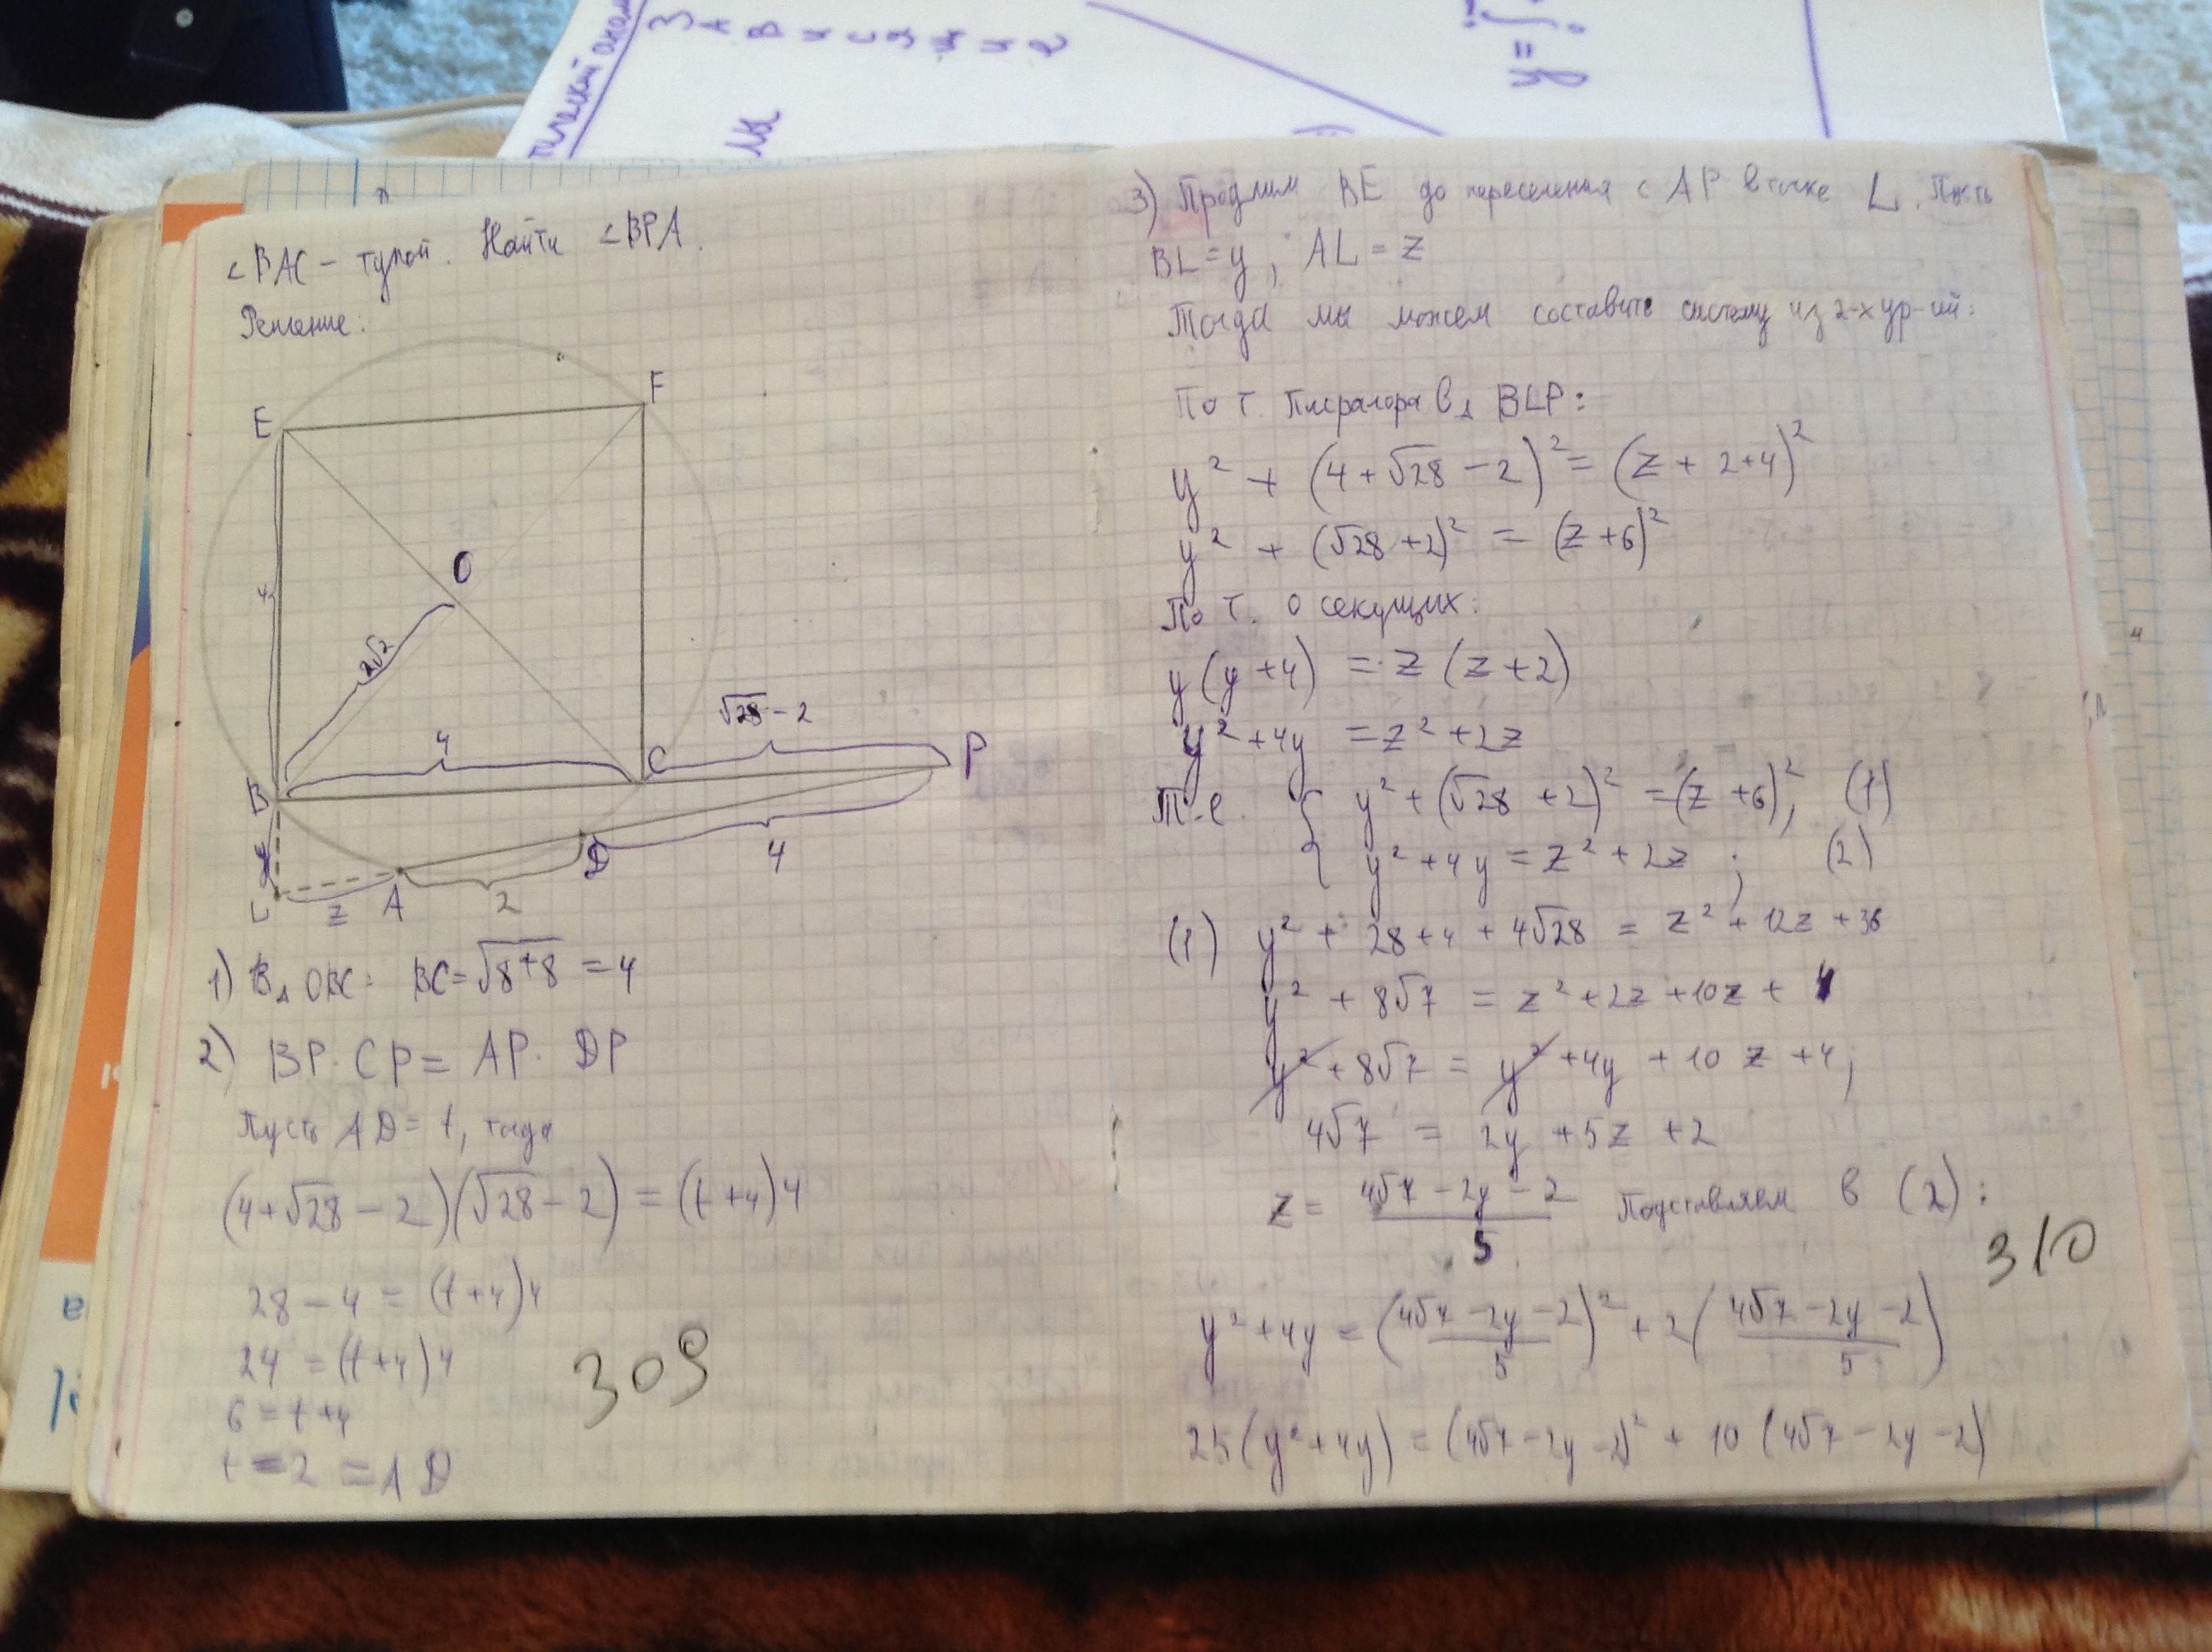 ∠BAC – тупой. Найти ∠BPA.
Решение:
E
F
O
4
2√2
4
√28 – 2
B
C
P
y
D
4
L
z
A
2
1) В △ OBC: BC = √8+8 = 4
2) BP · CP = AP · DP
Пусть AD = t, тогда
(4+√28 – 2)(√28 – 2) = (t +4)4
28 – 4 = (t+4)4
24 = (t+4)4
6 = t+4
t = 2 = AD
309
3) Продлим BE до пересечения с AP в точке L. Пусть
BL = y; AL = z
Тогда мы можем составить систему из 2-х ур-ий:
По т. Пифагора в △ BLP:
y² + (4 + √28 – 2)² = (z + 2+4)²
y² + (√28 +2)² = (z +6)²
По т. о секущих:
y(y+4) = z (z+2)
y² +4y = z² +2z
Т.е. { y² + (√28 +2)² = (z +6)², (1)
y² +4y = z² +2z ; (2)
(1) y² + 28 +4 + 4√28 = z² + 12z +36
y² + 8√7 = z² +2z +10z + 4
y² + 8√7 = y² +4y + 10 z +4;
4√7 = 2y +5z +2
z = 4√7 – 2y – 2 / 5 Подставляем в (2):
310
y² +4y = (4√7 – 2y – 2 / 5)² + 2(4√7 – 2y – 2 / 5)
25(y² +4y) = (4√7 – 2y – 2)² + 10 (4√7 – 2y – 2)